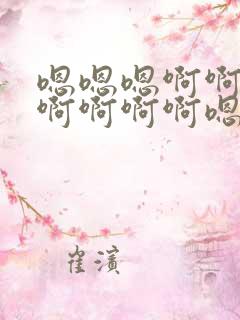 嗯嗯嗯啊啊
啊啊啊啊嗯
崔滨